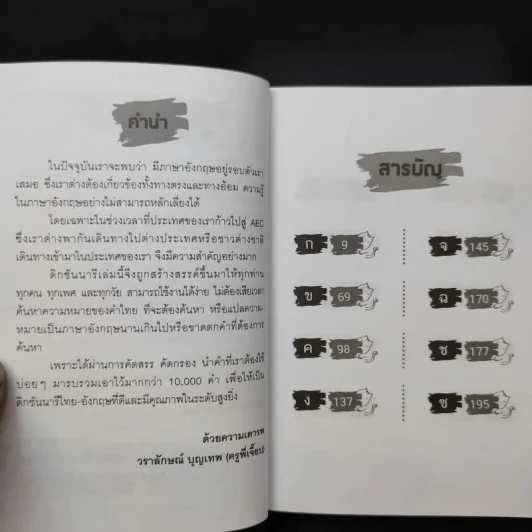 คำนำ
ในปัจจุบันเราจะพบว่า มีภาษาอังกฤษอยู่รอบตัวเรา
เสมอ ซึ่งเราต่างต้องเกี่ยวข้องทั้งทางตรงและทางอ้อม ความรู้
ในภาษาอังกฤษอย่างไม่สามารถหลีกเลี่ยงได้
โดยเฉพาะในช่วงเวลาที่ประเทศของเราก้าวไปสู่ AEC
ซึ่งเราต่างพากันเดินทางไปต่างประเทศหรือชาวต่างชาติ
เดินทางเข้ามาในประเทศของเรา จึงมีความสำคัญอย่างมาก
ดิกชันนารีเล่มนี้จึงถูกสร้างสรรค์ขึ้นมาให้ทุกท่าน
ทุกคน ทุกเพศ และทุกวัย สามารถใช้งานได้ง่าย ไม่ต้องเสียเวลา
ค้นหาความหมายของคำไทย ที่จะต้องค้นหา หรือแปลความ
หมายเป็นภาษาอังกฤษนานเกินไปหรือขาดตกคำที่ต้องการ
ค้นหา
เพราะได้ผ่านการคัดสรร คัดกรอง นำคำที่เราต้องใช้
บ่อยๆ มารวบรวมเอาไว้มากกว่า 10,000 คำ เพื่อให้เป็น
ดิกชันนารีไทย-อังกฤษที่ดีและมีคุณภาพในระดับสูงยิ่ง
ด้วยความเคารพ
วราลักษณ์ บุญเทพ (ครูพี่เจี๊ยบ)
สารบัญ
ก 9
จ 145
ข 69
ฉ 170
ค 98
ช 177
ง 137
ซ 195